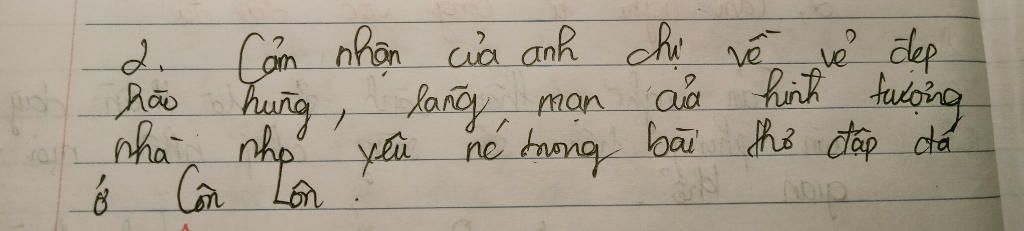 2. Cảm nhận của anh chị về vẻ đẹp
hào hùng, lãng mạn của hình tượng
nhà nho yêu nc trong bài thơ đập đá
ở Côn Lôn.